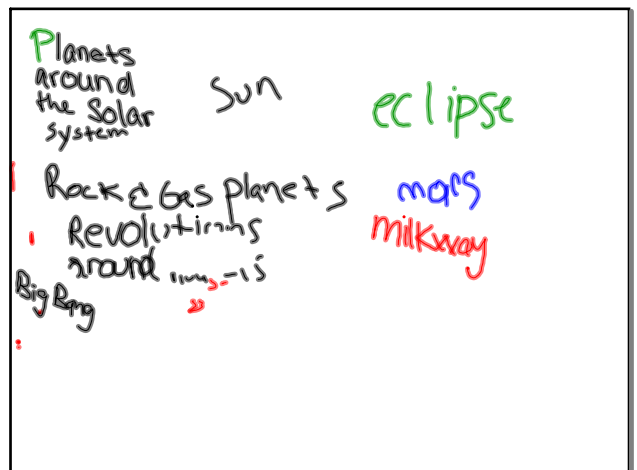 Planets
around
the Solar
system
Sun
eclipse
Rock & Gas planets
mars
Revolutions
around
Milkway
Big Bang